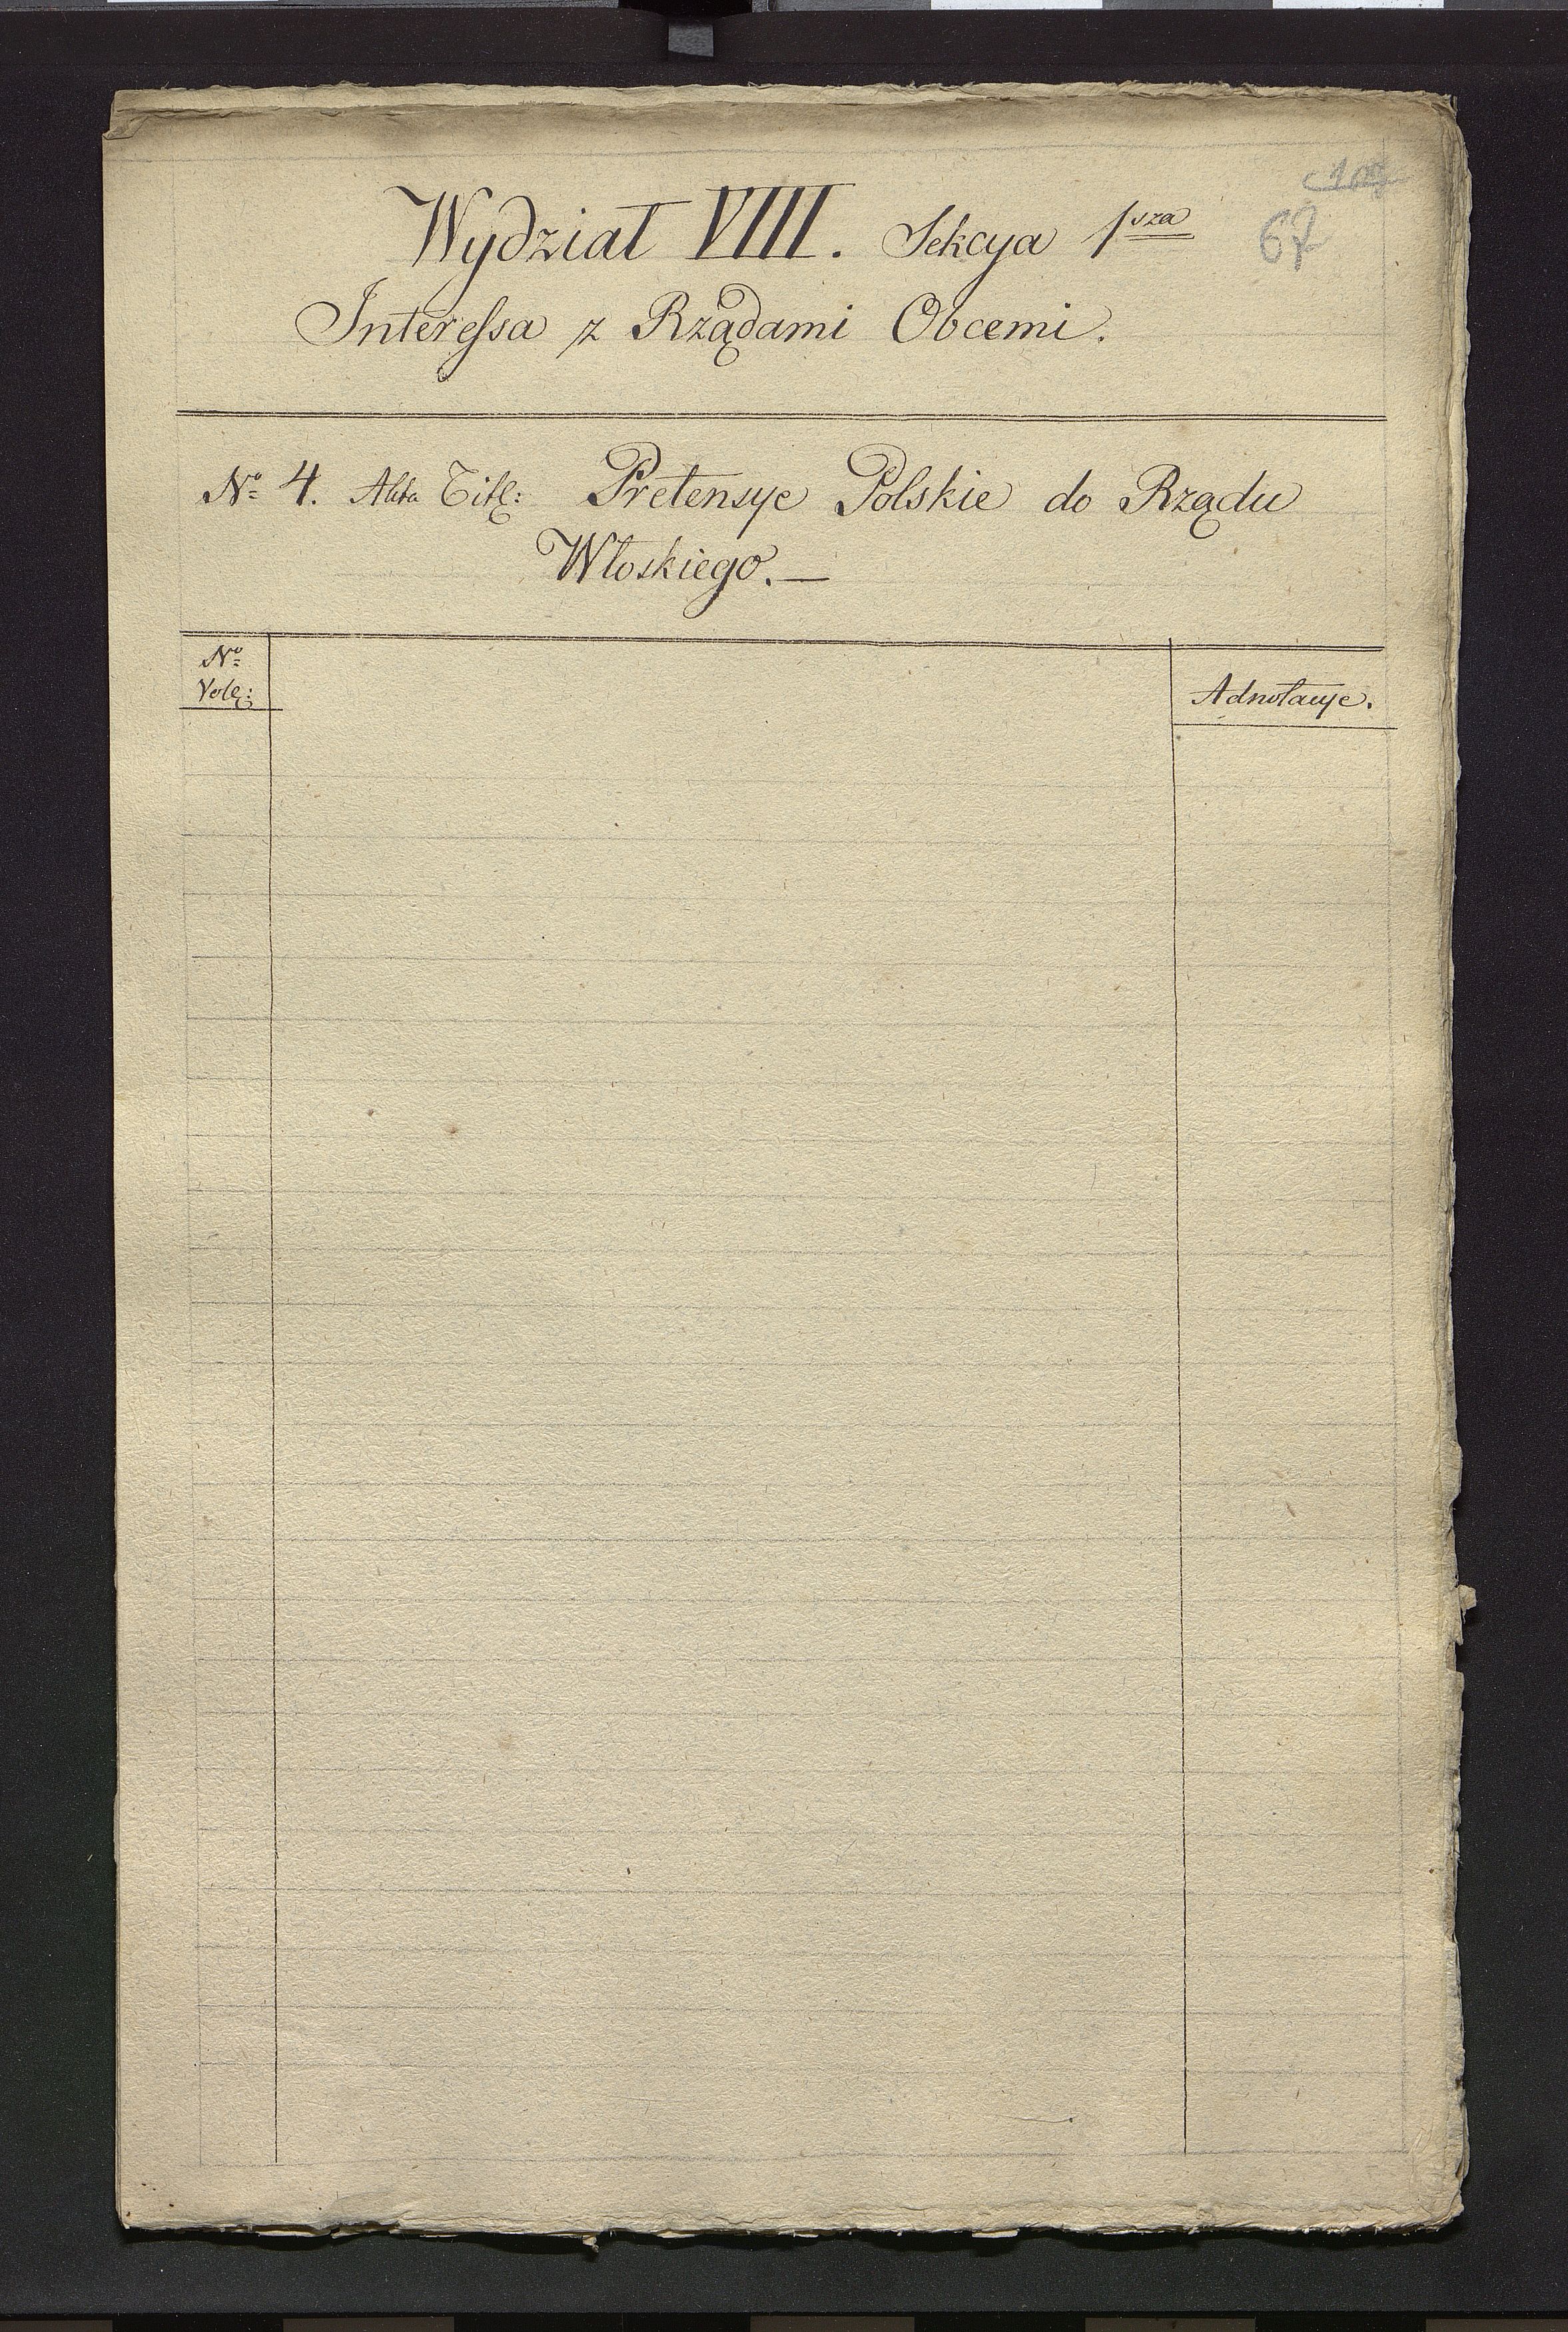 Wydział VIII. Sekcya 1sza
67
Interessa z Rządami Obcemi.
No 4. Akta Titl: Pretensye Polskie do Rządu
Włoskiego.—
No
Vol:
Adnotacye.